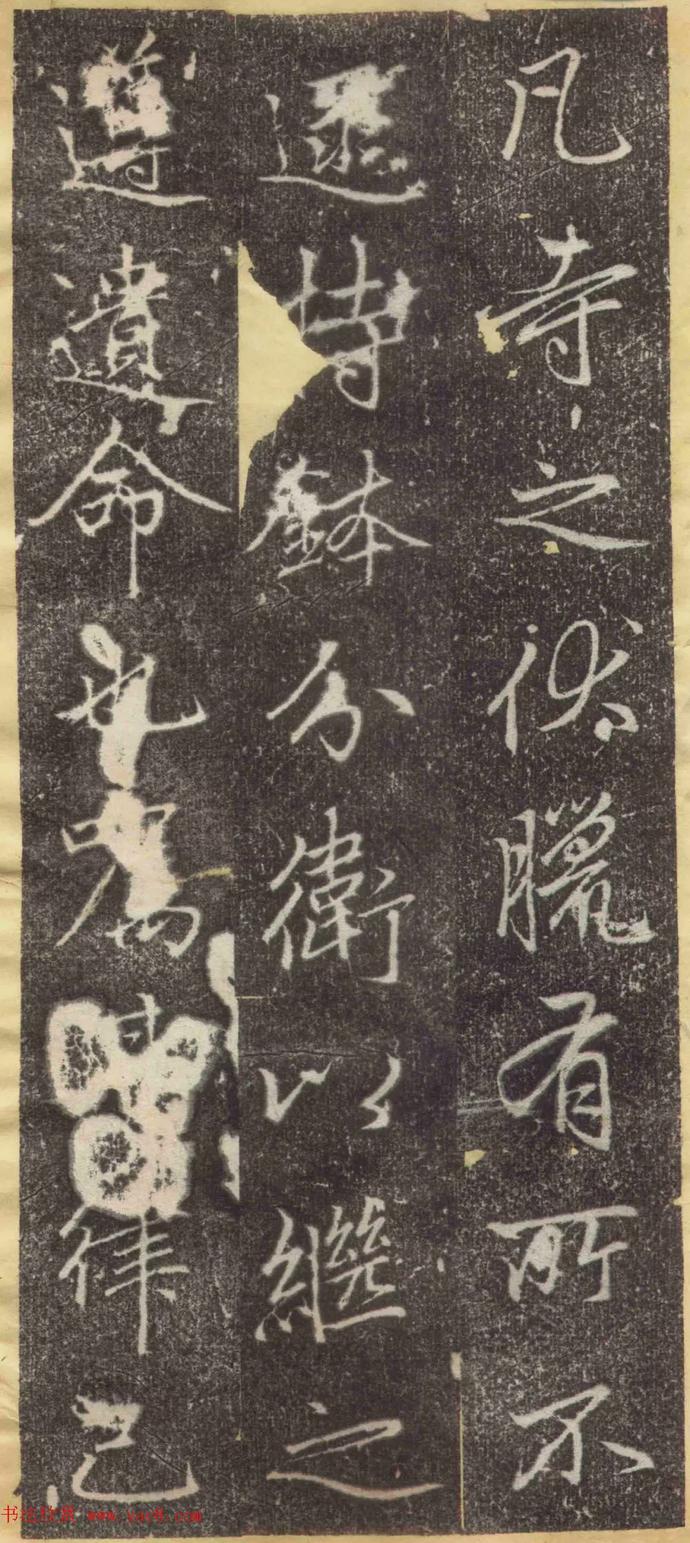 凡寺之伏臘有所不
逮持鉢分衛以繼之
遵遺命也律己
书法欣赏 www.yac8.com